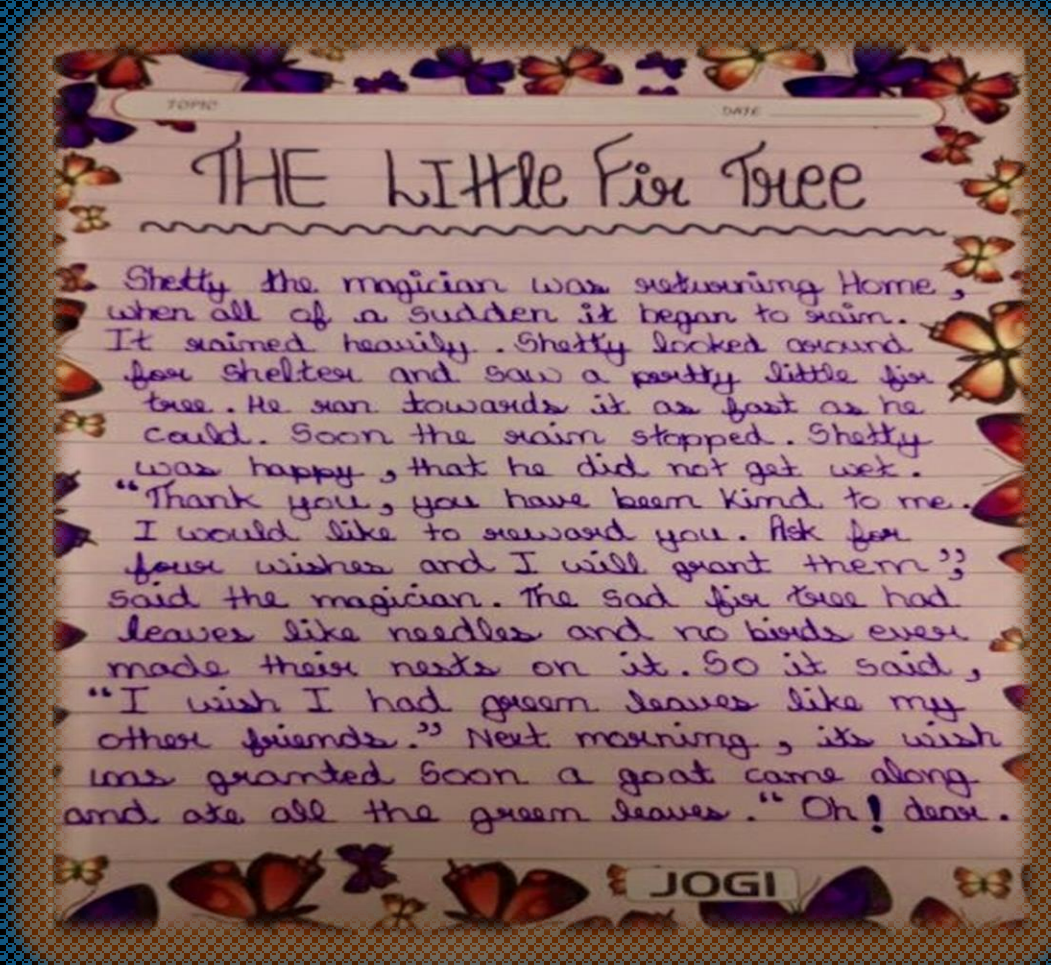 TOPIC
DATE
THE LIttle Fir Tree
Shetty the magician was returning Home,
when all of a sudden it began to rain.
It rained heavily. Shetty looked around
for shelter and saw a pretty little fir
tree. He ran towards it as fast as he
could. Soon the rain stopped. Shetty
was happy, that he did not get wet.
“Thank you, you have been kind to me.
I would like to reward you. Ask for
four wishes and I will grant them”,
said the magician. The sad fir tree had
leaves like needles and no birds ever
made their nests on it. So it said,
“I wish I had green leaves like my
other friends.” Next morning, its wish
was granted Soon a goat came along
and ate all the green leaves. “Oh! dear.
JOGI